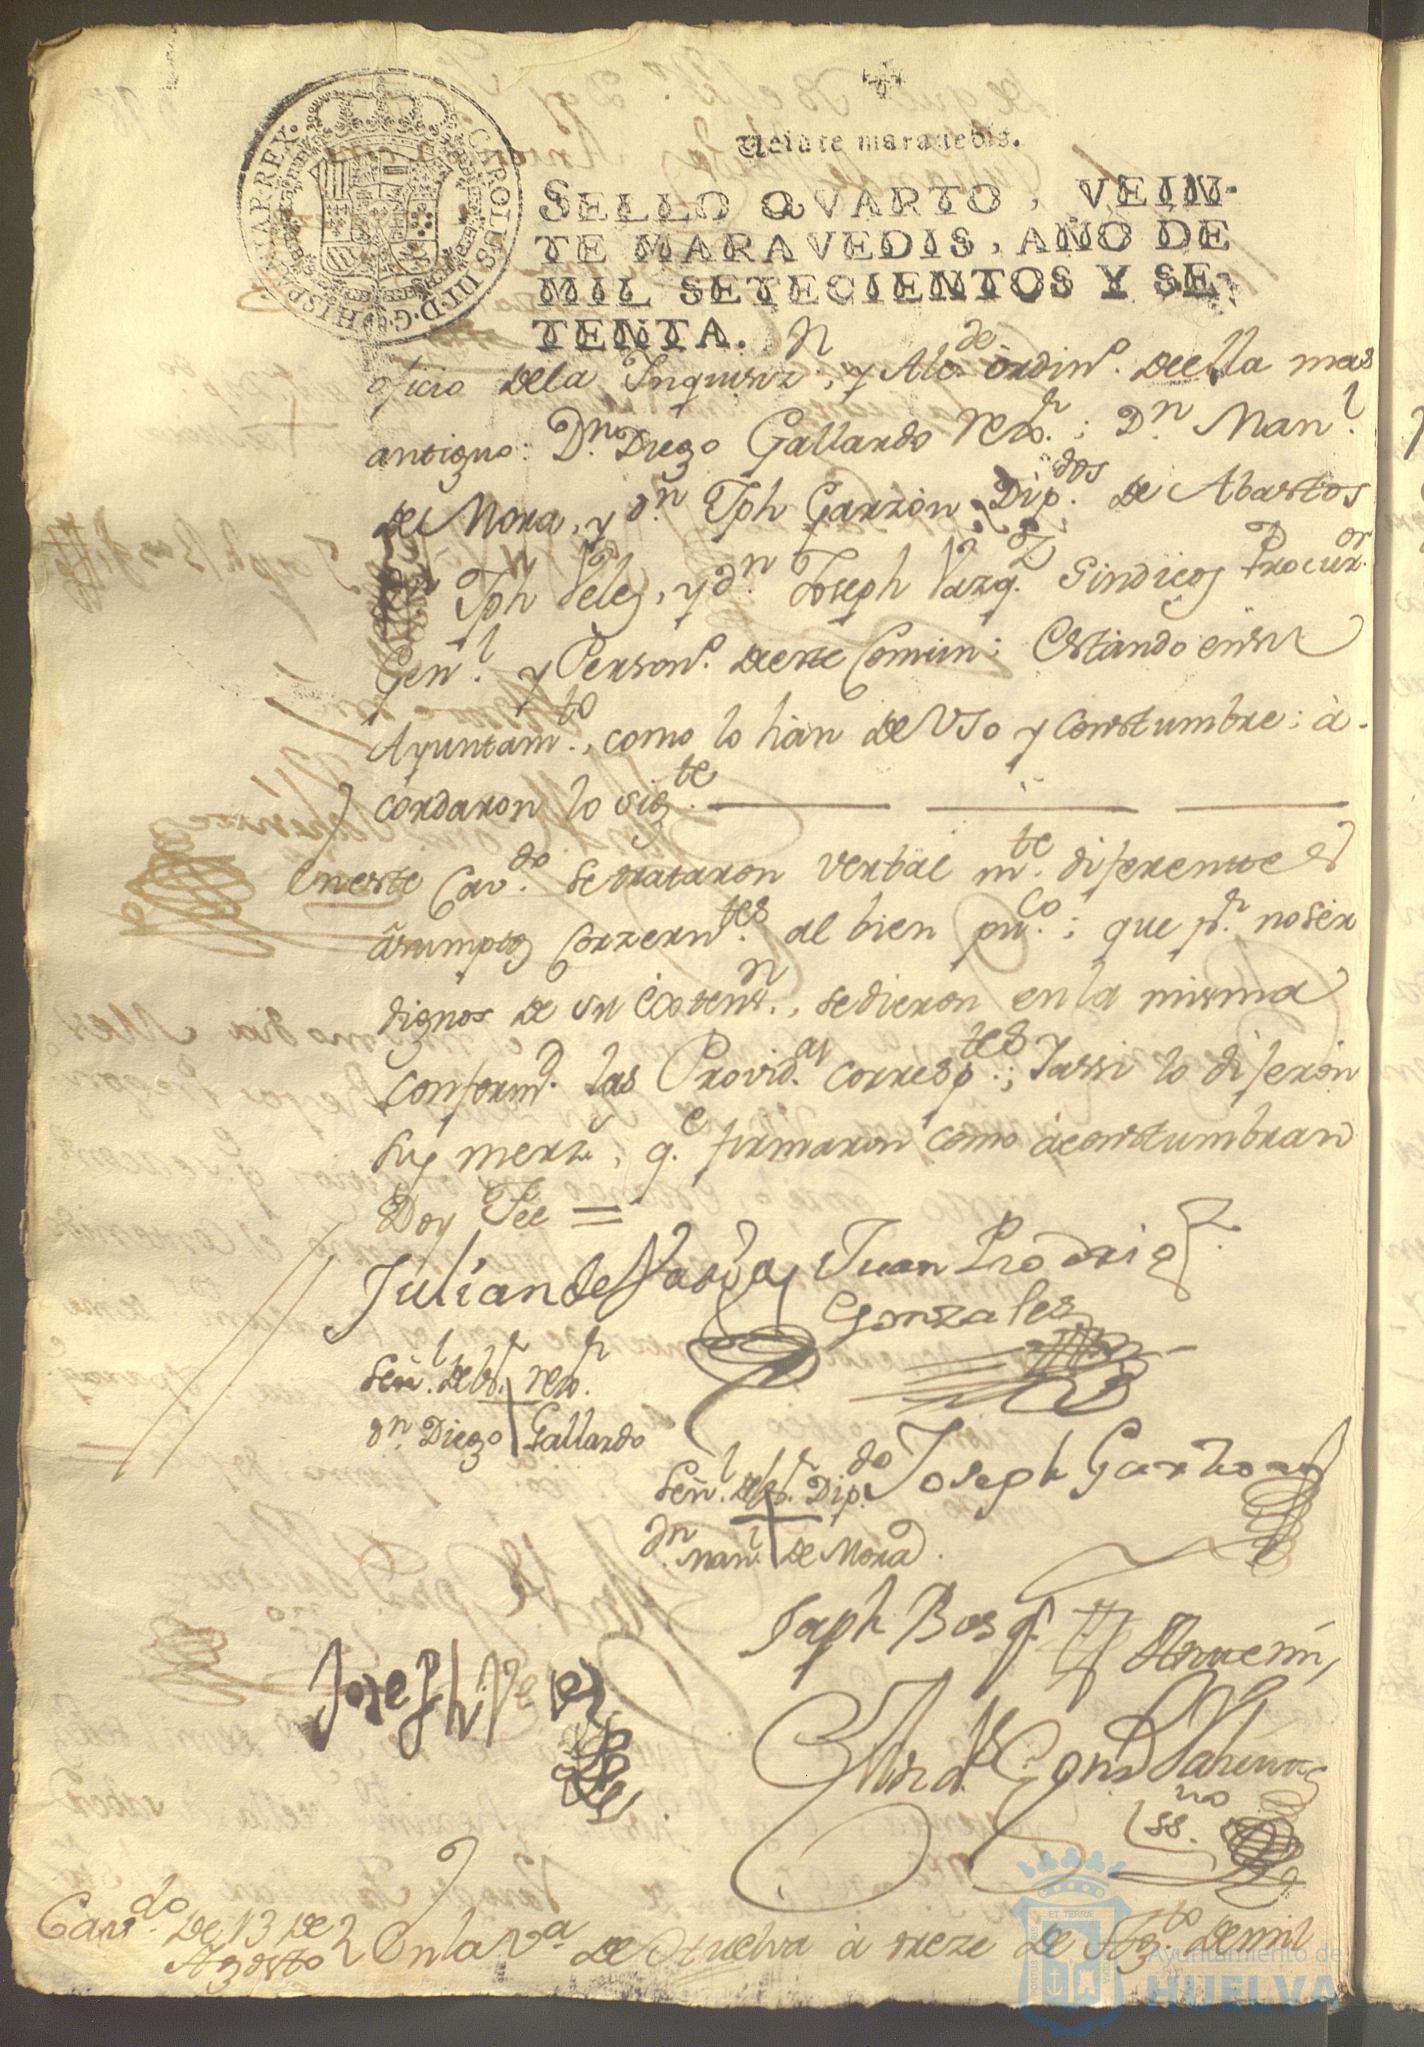 CAROLUS III D. G. HISPANIAR. REX.
Veinte marauedis.
SELLO QVARTO, VEIN-
TE MARAVEDIS, AÑO DE
MIL SETECIENTOS Y SE-
TENTA.
oficio dela Inquisizn., y Alcde. ordino. deella mas
antiguo: Dn. Diego Gallardo Rexr.; Dn. Manl.
de Mora, y dn. Jph Garzòn, Dipdos. de Abastos
Jph Velez, y dn. Joseph Vazqz. Sindicos Procuror.
Genl. y Persono. deeste Comun; Estando en su
Ayuntamto., como lo hàn de Vso y Constumbre: à-
cordaron lo sigte.
Eneste Cavdo. se trataron verbalmte. diferentes
àsumptos Conzerntes. al bien puco.; que pr. no sèr
dignos de su Extensn., se dieron en la misma
Conformd. las Providas. corresptes.; Y assi lo difieron
sus merzs., qe. firmaron como àconstumbran
Doy Fee =
Julian de Juan Rodrigz.
Gonzales
Señl. delsr. Rexr.
dn. Diego Gallardo
Señl. delsr. Dipdo. Joseph Garzon
dn. Manl. de Mora
Josephh Velez
Jsph Basqz
Antemi,
ssno.
Cavdo. de 13 de
Agosto
En la Va. de Huelva à treze de Agto. de mil
ET TERRÆ
Ayuntamiento de
HUELVA